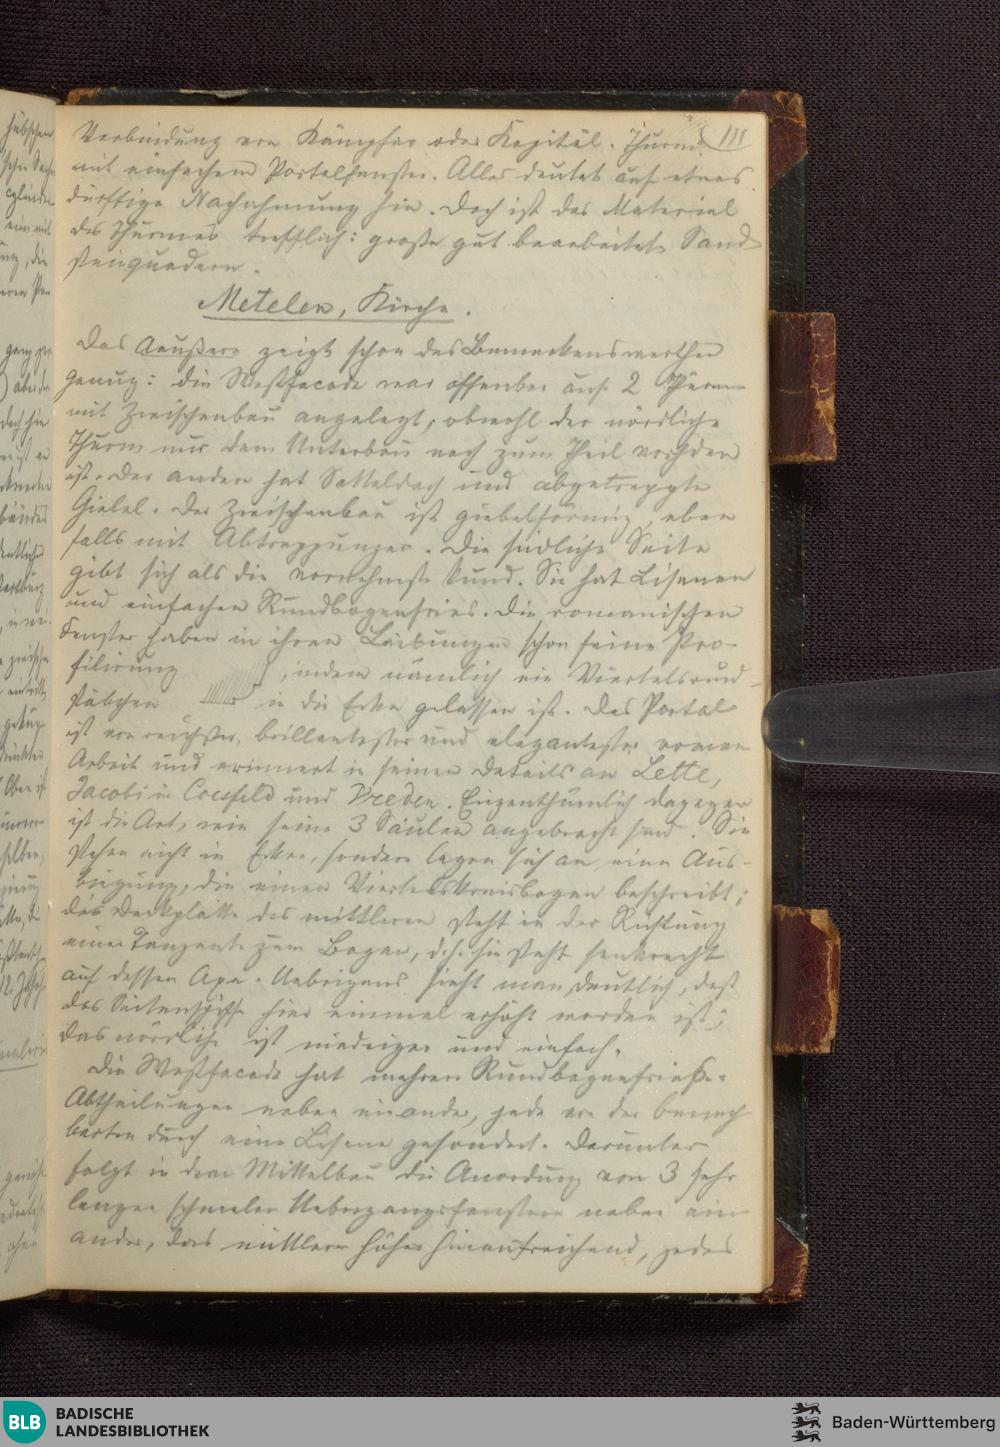 111
Verbindung von Kämpfer oder Kapitäl. Thurm
mit einfachem Portalfenster. Alles deutet auf etwas
dürftige Nachahmung hin. Doch ist das Material
des Thurmes trefflich: große gut bearbeitete Sand
steinquadern.
Metelen, Kirche.
Das Aeußere zeigt schon des Bemerkenswerthen
genug: die Westfacade war offenbar auf 2 Thürme
mit Zwischenbau angelegt, obwohl der nördliche
Thurm nur dem Unterbau nach zum Theil vorhanden
ist. Der andere hat Satteldach und abgetreppte
Giebel. Der Zwischenbau ist giebelförmig, eben
falls mit Abtreppungen. Die südliche Seite
gibt sich als die vornehmste kund. Sie hat Lisenen
und einfachen Rundbogenfries. Die romanischen
Fenster haben in ihren Laibungen schon feine Pro-
filirung, indem nämlich ein Viertelsrund-
stäbchen in die Ecke gelassen ist. Das Portal
ist von reichster, brillantester und elegantester roman
Arbeit und erinnert in seinen Details an Lette,
Jacobi in Coesfeld und Vreden. Eigenthümlich dagegen
ist die Art, wie seine 3 Säulen angebracht sind. Sie
stehen nicht in Ecken, sondern legen sich an eine Aus-
biegung, die einen Viertelskreisbogen beschreibt;
die Deckplatte des mittleren steht in der Richtung
einer Tangente zum Bogen, d.h. sie steht senkrecht
auf dessen Axe. Uebrigens sieht man deutlich, daß
das Seitenschiff hier einmal erhöht worden ist;
das nördliche ist niedriger und einfach.
Die Westfacade hat mehrere Rundbogenfries-
Abtheilungen neben einander, jede von der benach
barten durch eine Lisene gesondert. Darunter
folgt in dem Mittelbau die Anordnung von 3 sehr
langen schmalen Uebergangsfenstern neben ein
ander, das mittlere höher hinaufreichend, jedes
BLB BADISCHE
LANDESBIBLIOTHEK
Baden-Württemberg